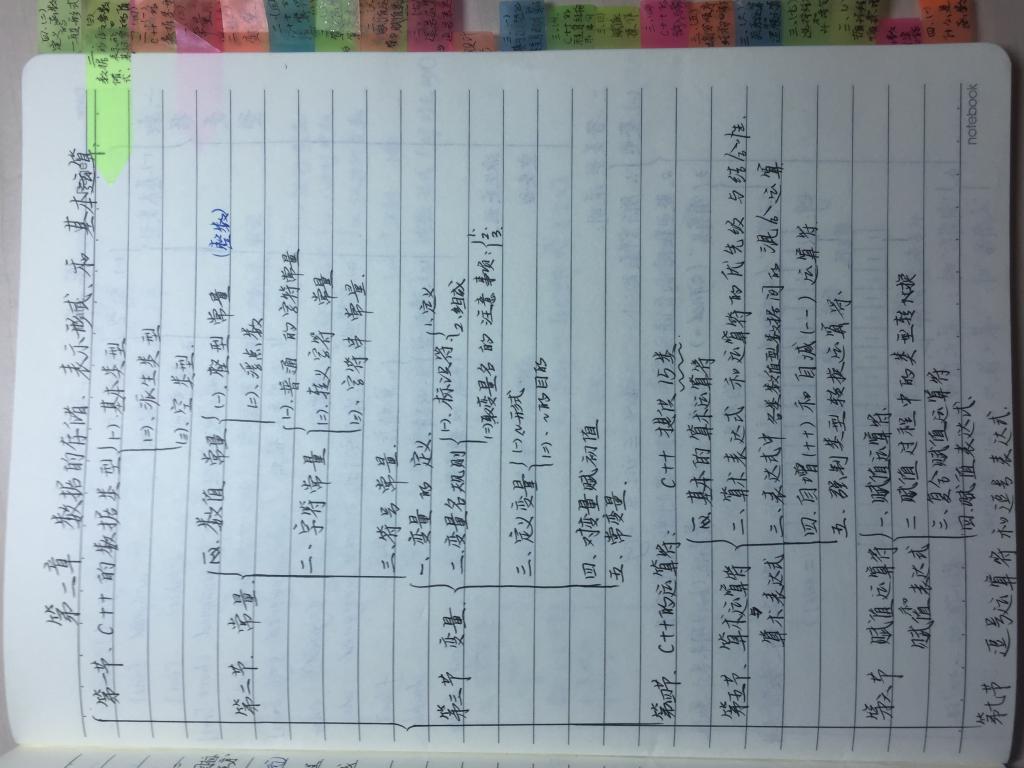 第二章 数据的存储、表示形式、和 基本运算.
第一节、C++的数据类型 (一)基本类型
(二)派生类型
(三)空类型.
第二节、常量. 一、数值常量 (一).整型常量 (整数)
(二).浮点数
二、字符常量 (一)普通的字符常量
(二)转义字符常量
(三)、字符串常量.
三.符号常量.
第三节 变量. 一、变量的定义.
二.变量名规则 (一)、标识符 1.定义
2.组成
(二)取变量名的注意事项: 1. 2. 3.
三、定义变量 (一)~形式
(二).~的目的
四、对变量赋初值
五、常变量.
第四节、C++的运算符: C++提供15类
第五节、算术运算符与算术表达式 一、基本的算术运算符
二、算术表达式和运算符的优先级与结合性.
三、表达式中各类数值型数据间的混合运算
四、自增(++)和自减(--)运算符
五、强制类型转换运算符.
第六节 赋值运算符和赋值表达式 一、赋值运算符
二 赋值过程中的类型转换
三、复合赋值运算符
四.赋值表达式.
第七节 逗号运算符和逗号表达式.
notebook